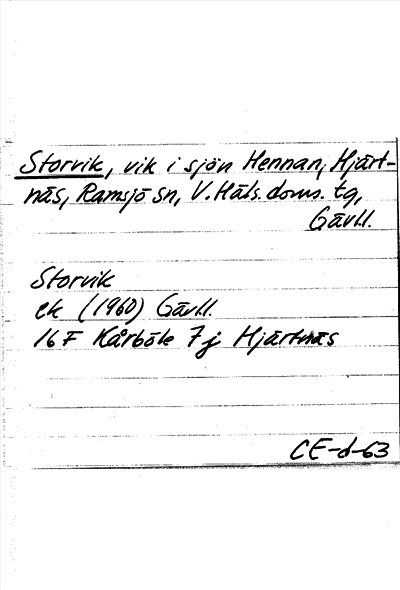 Storvik, vik i sjön Hennan, Hjärt-
näs, Ramsjö sn, V. Häls. doms. tg,
Gävl.l.
Storvik
ek (1960) Gävl.l.
16 F Kårböle 7 j Hjärtnäs
CE-d-63